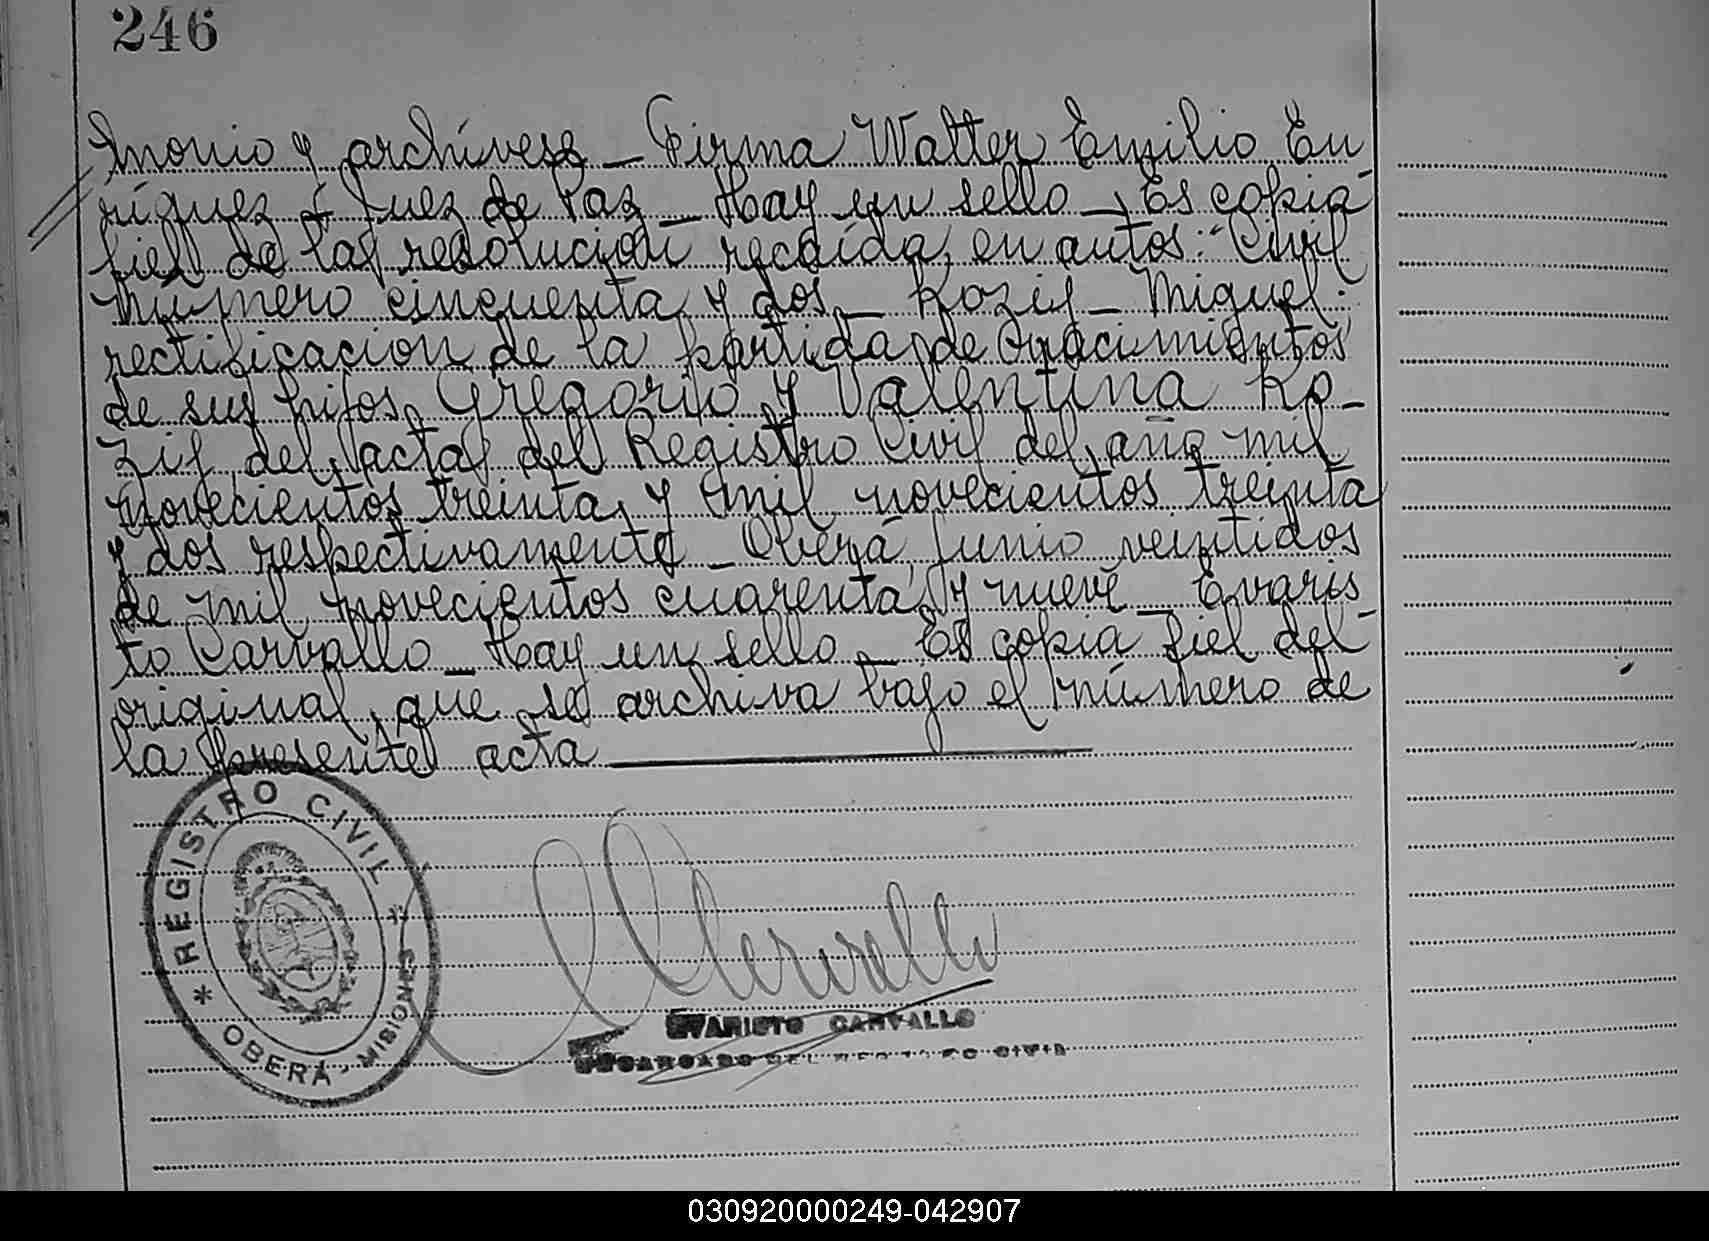 246
monio y archívese – Firma Walter Emilio En
ríquez – Juez de Paz – Hay un sello – Es copia
fiel de la resolución recaída en autos: "Civil
número cincuenta y dos – Kozij – Miguel:
rectificación de la partida de nacimientos
de sus hijos Gregorio y Valentina Ko-
zij del acta del Registro Civil del año mil
novecientos treinta y mil novecientos treinta
y dos respectivamente – Oberá, Junio veintidos
de mil novecientos cuarenta y nueve – Evaris
to Carvallo – Hay un sello – Es copia fiel del
original que se archiva bajo el número de
la presente acta
REGISTRO CIVIL
* OBERÁ - MISIONES *
EVARISTO CARVALLO
ENCARGADO DEL REGISTRO CIVIL
030920000249-042907